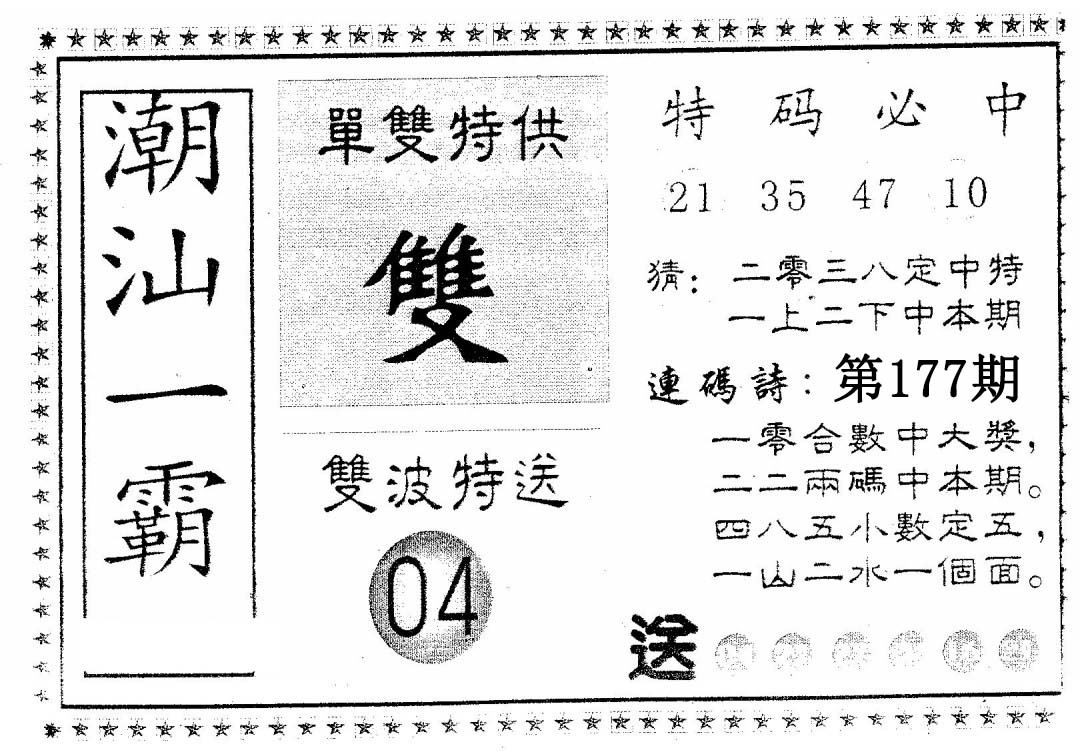 潮汕一霸
單雙特供
雙
雙波特送
04
特码必中
21 35 47 10
猜：二零三八定中特
一上二下中本期
連碼詩：第177期
一零合數中大獎，
二二兩碼中本期。
四八五小數定五，
一山二水一個面。
送